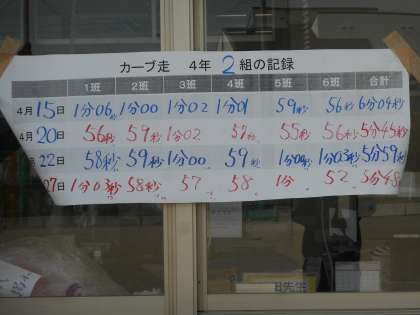 カーブ走 4年 2組の記録
1班 2班 3班 4班 5班 6班 合計
4月15日 1分06秒 1分00 1分02 1分01 59秒 56秒 6分04秒
4月20日 56秒 59秒 1分02 55秒 56秒 5分45秒
22日 58秒 59秒 1分00 59秒 1分00秒 1分03秒 5分59秒
日 1分03秒 58秒 57 58 1分 52 5分48
先生